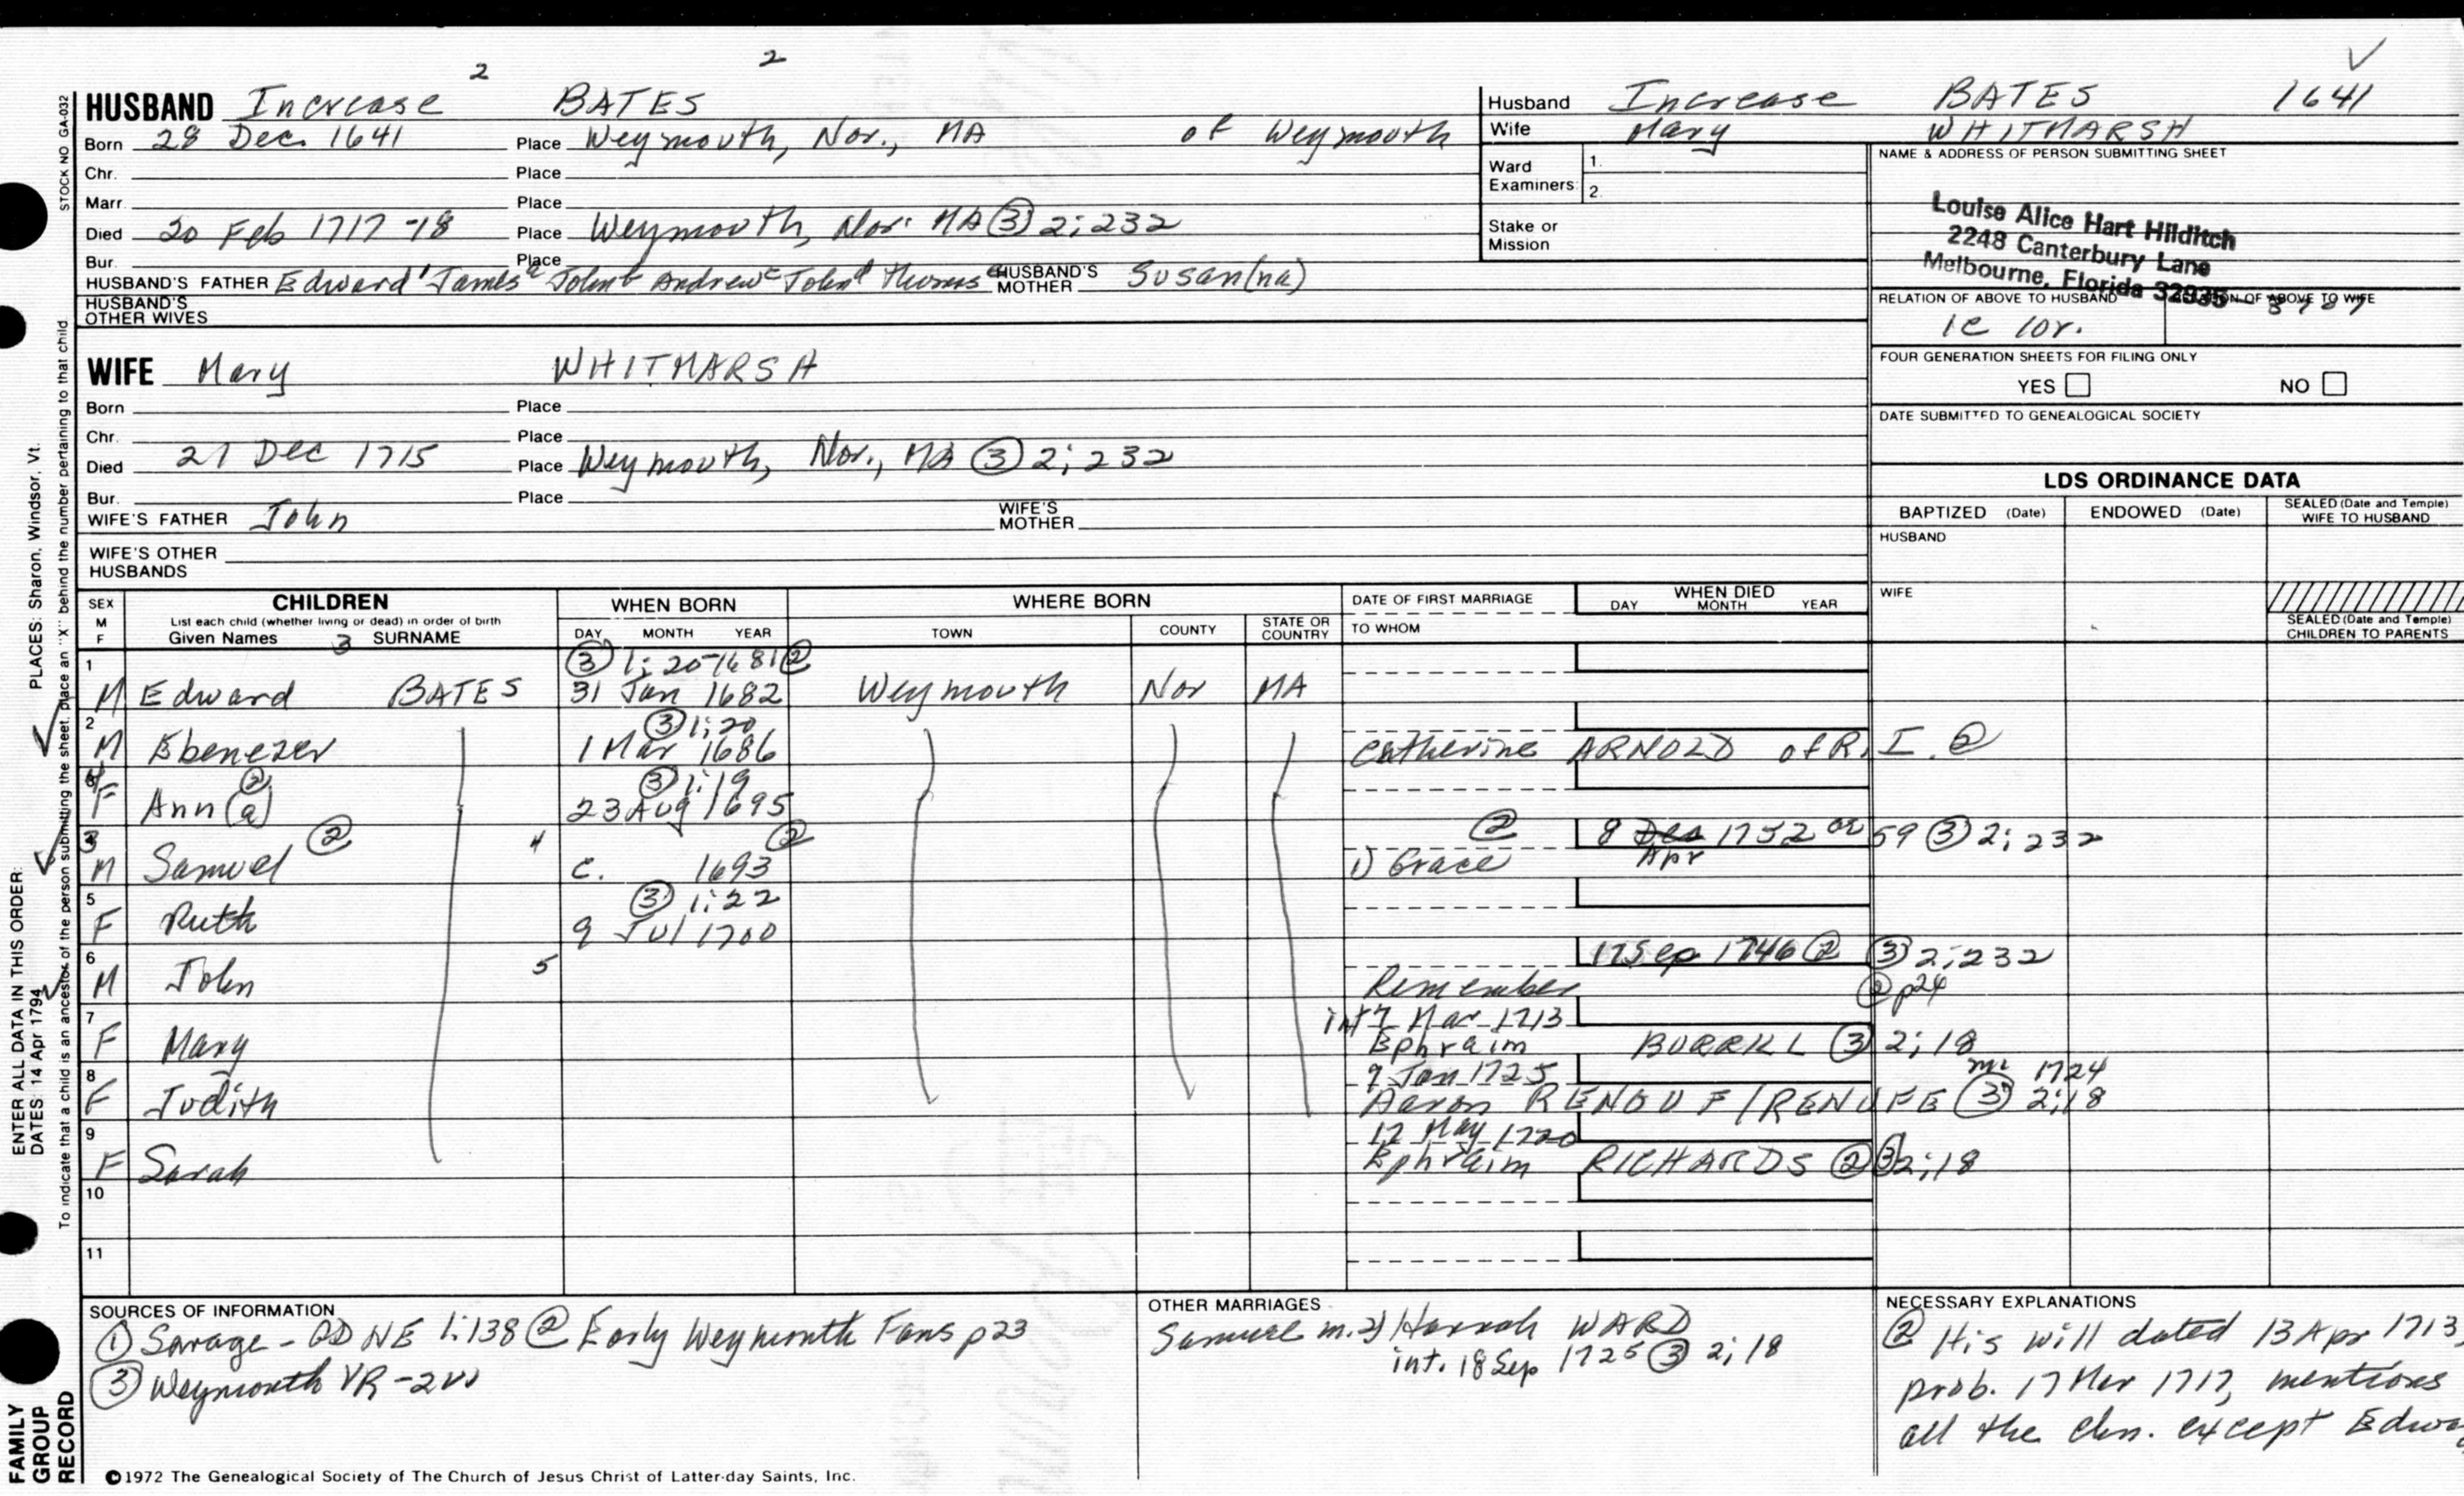 2 2
HUSBAND Increase BATES
Born 28 Dec. 1641 Place Weymouth, Nor., MA of Weymouth
Chr. Place
Marr. Place
Died 20 Feb 1717-18 Place Weymouth, Nor. MA ③ 2;232
Bur. Place
HUSBAND'S FATHER Edward¹ James John Andrew John Thomas HUSBAND'S MOTHER Susan(na)
HUSBAND'S OTHER WIVES
WIFE Mary WHITMARSH
Born Place
Chr. Place
Died 27 Dec 1715 Place Weymouth, Nor., MA ③ 2;232
Bur. Place
WIFE'S FATHER John WIFE'S MOTHER
WIFE'S OTHER HUSBANDS
Husband Increase BATES 1641
Wife Mary WHITMARSH
Ward Examiners: 1. 2.
Stake or Mission
NAME & ADDRESS OF PERSON SUBMITTING SHEET
Louise Alice Hart Hilditch
2248 Canterbury Lane
Melbourne, Florida 32935
RELATION OF ABOVE TO HUSBAND RELATION OF ABOVE TO WIFE
1c 10r.
FOUR GENERATION SHEETS FOR FILING ONLY
YES NO
DATE SUBMITTED TO GENEALOGICAL SOCIETY
LDS ORDINANCE DATA
BAPTIZED (Date) ENDOWED (Date) SEALED (Date and Temple) WIFE TO HUSBAND
HUSBAND
WIFE
SEALED (Date and Temple) CHILDREN TO PARENTS
SEX M F
CHILDREN
List each child (whether living or dead) in order of birth
Given Names 3 SURNAME
WHEN BORN DAY MONTH YEAR
WHERE BORN TOWN COUNTY STATE OR COUNTRY
DATE OF FIRST MARRIAGE
TO WHOM
WHEN DIED DAY MONTH YEAR
1 ③ 1:20-1681②
M Edward BATES 31 Jan 1682 Weymouth Nor MA
2 ③ 1:20
M Ebenezer 1 Mar 1686 Catherine ARNOLD of R.I. ②
4 ② ③ 1:19
F Ann(a) 23 Aug 1695
3 ② 4 ② ② 8 Dec Apr 1752 or 59 ③ 2;232
M Samuel c. 1693 1) Grace
5 ③ 1:22
F Ruth 9 Jul 1700
6 5 17 Sep 1746 ② ③ 2;232
M John Remember ② p24
7 int 7 Mar 1713
F Mary Ephraim BURRKL ③ 2;18
8 9 Jan 1725 mi 1724
F Judith Aaron RENOUF/RENUFE ③ 2;18
9 12 May 1720
F Sarah Ephraim RICHARDS ② ③ 2;18
10
11
SOURCES OF INFORMATION
① Savage - GD NE 1:138 ② Early Weymouth Fams p23
③ Weymouth VR - 2W
OTHER MARRIAGES
Samuel m. 2) Hannah WARD
int. 18 Sep 1725 ③ 2;18
NECESSARY EXPLANATIONS
② His will dated 13 Apr 1713,
prob. 17 Mar 1717, mentions
all the chn. except Edwa
STOCK NO GA-032
PLACES: Sharon, Windsor, Vt.
ENTER ALL DATA IN THIS ORDER:
DATES: 14 Apr 1794
To indicate that a child is an ancestor of the person submitting the sheet, place an "X" behind the number pertaining to that child
FAMILY GROUP RECORD
©1972 The Genealogical Society of The Church of Jesus Christ of Latter-day Saints, Inc.